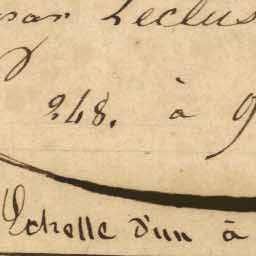 par Leclus
248. à 9
Echelle d'un à